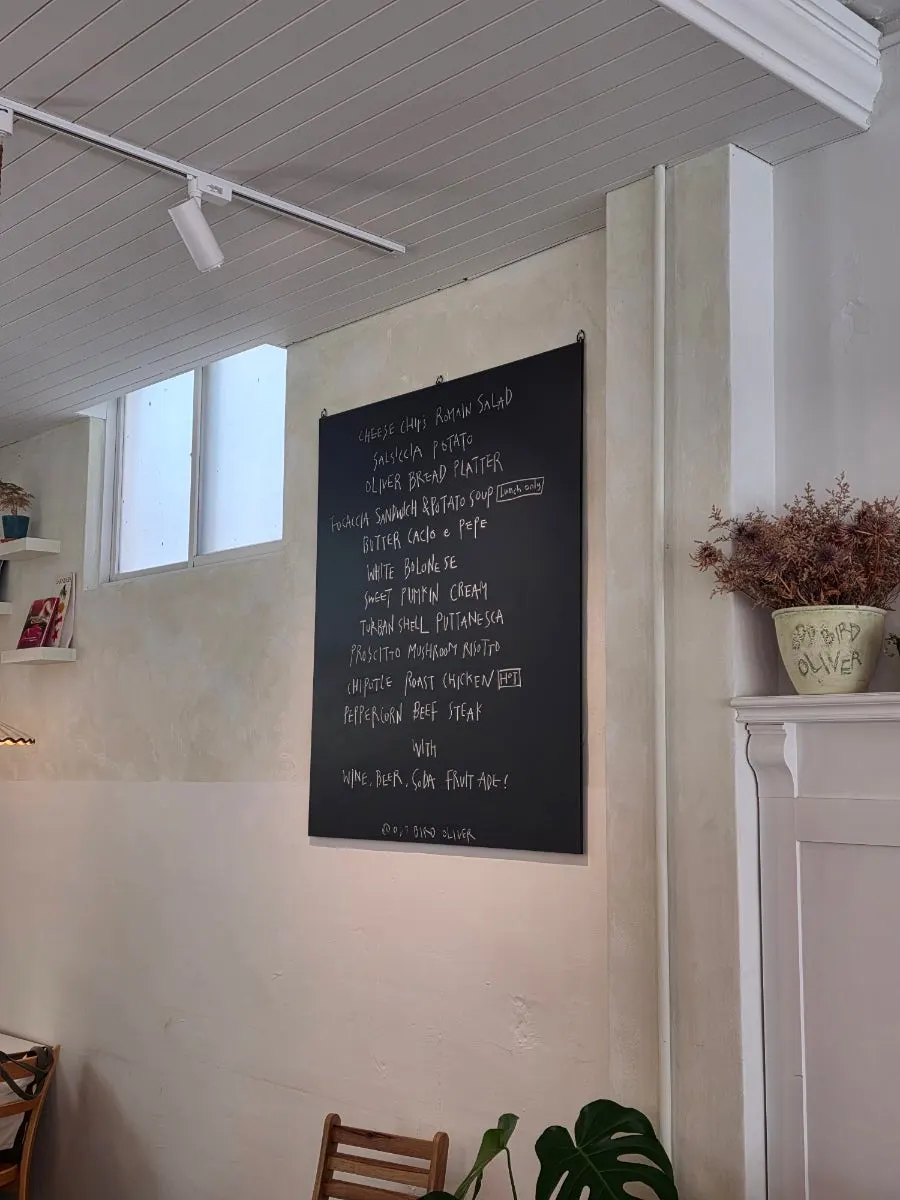 CHEESE CHIPS ROMAIN SALAD
SALSICCIA POTATO
OLIVER BREAD PLATTER
FOCACCIA SANDWICH & POTATO SOUP Lunch only
BUTTER CACIO e PEPE
WHITE BOLONESE
SWEET PUMPKIN CREAM
TURBAN SHELL PUTTANESCA
PROSCITTO MUSHROOM RISOTTO
CHIPOTLE ROAST CHICKEN HOT
PEPPERCORN BEEF STEAK
WITH
WINE, BEER, SODA FRUIT ADE!
BIRD OLIVER
BIRD
OLIVER